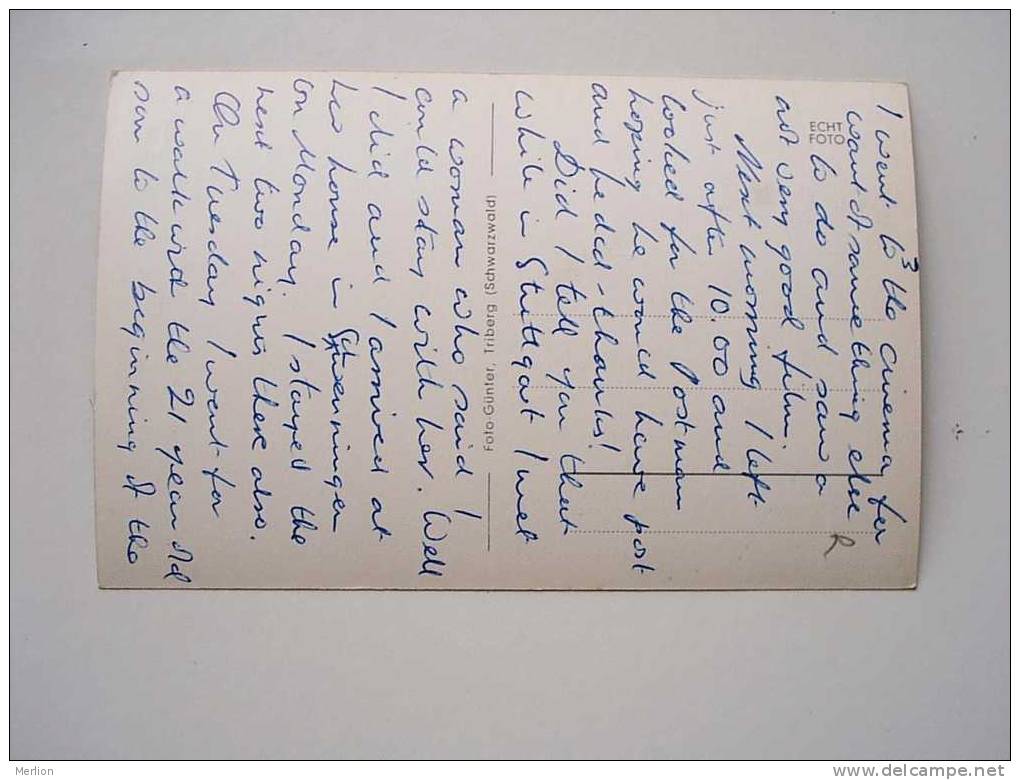 3
I went to the cinema for
want of something else
to do and saw a
not very good film.
Next morning I left
just after 10.00 and
looked for the Postman
hoping he would have post
and he did - thanks!
Did I tell you that
while in Stuttgart I met
a woman who said I
could stay with her. Well
I did and I arrived at
her house in Schwenningen
on Monday. I stayed the
next two nights there also.
On Tuesday I went for
a walk with the 21 year old
son to the beginning of the
ECHT
FOTO
Foto-Günter, Triberg (Schwarzwald)
R
Merlion
delcampe.net